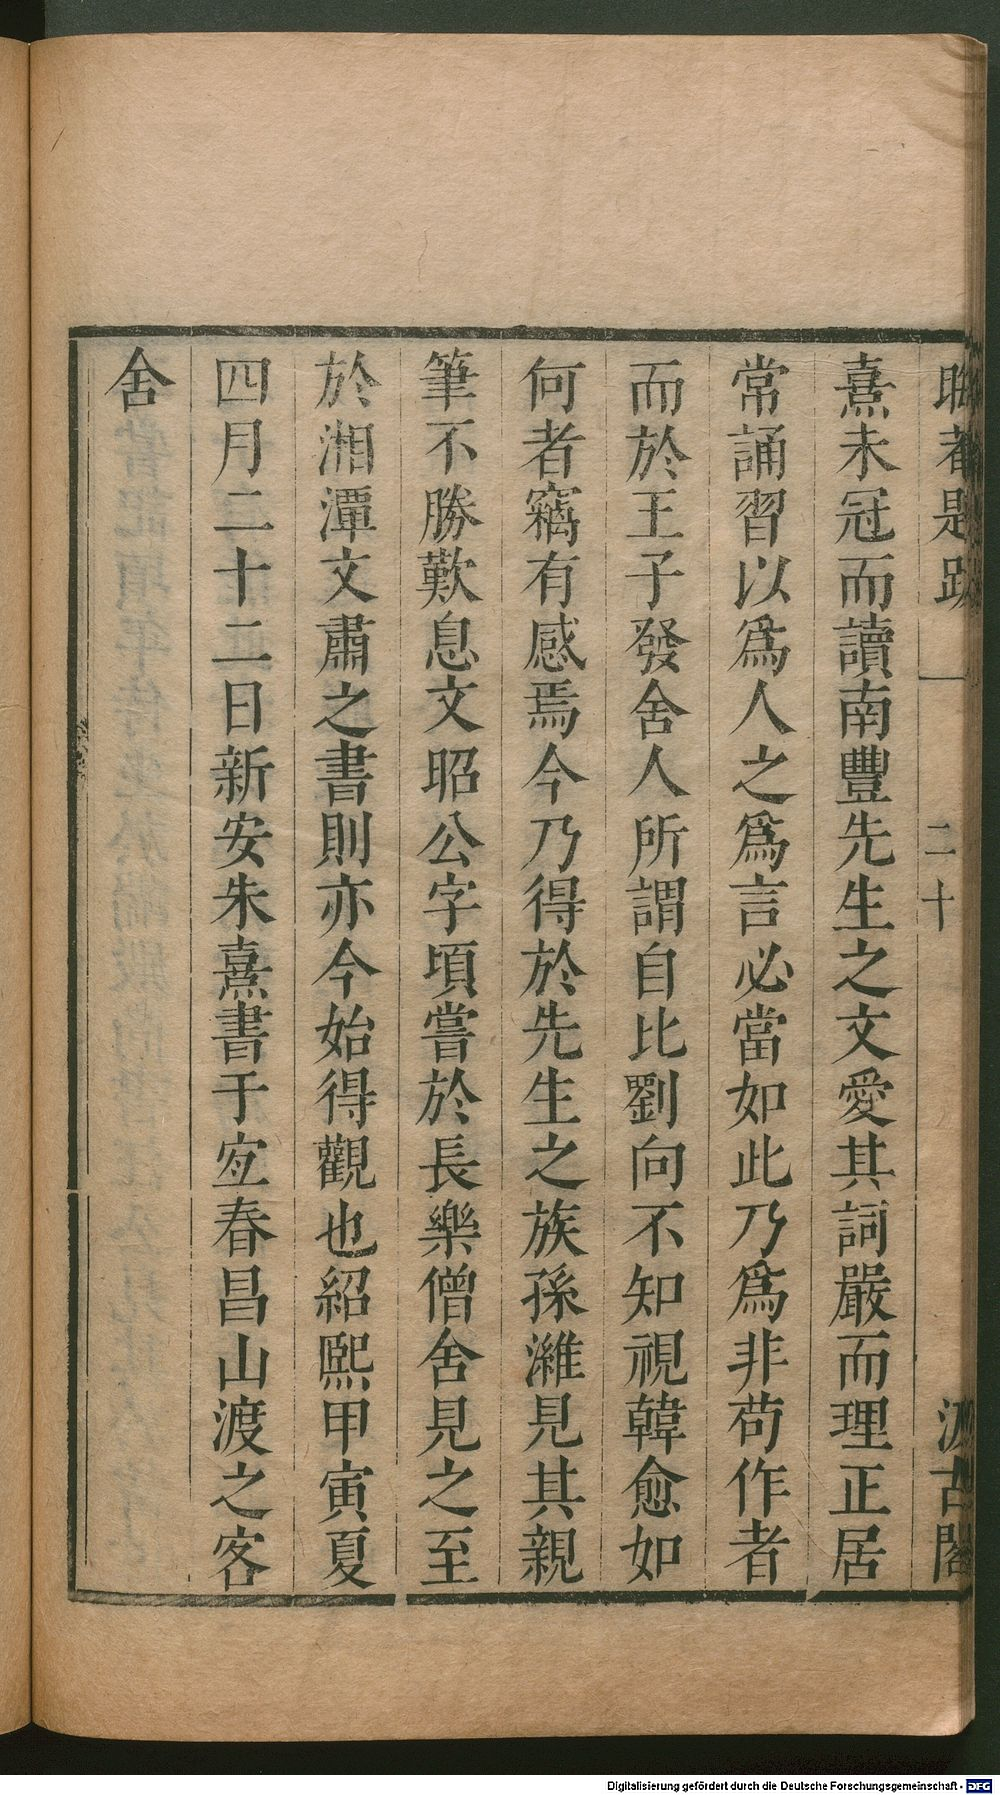 晦菴題跋 二十 汲古閣
熹未冠而讀南豐先生之文愛其詞嚴而理正居
常誦習以爲人之爲言必當如此乃爲非苟作者
而於王子發舍人所謂自比劉向不知視韓愈如
何者竊有感焉今乃得於先生之族孫濰見其親
筆不勝歎息文昭公字頃嘗於長樂僧舍見之至
於湘潭文肅之書則亦今始得觀也紹熙甲寅夏
四月二十二日新安朱熹書于宐春昌山渡之客
舍
Digitalisierung gefördert durch die Deutsche Forschungsgemeinschaft - DFG